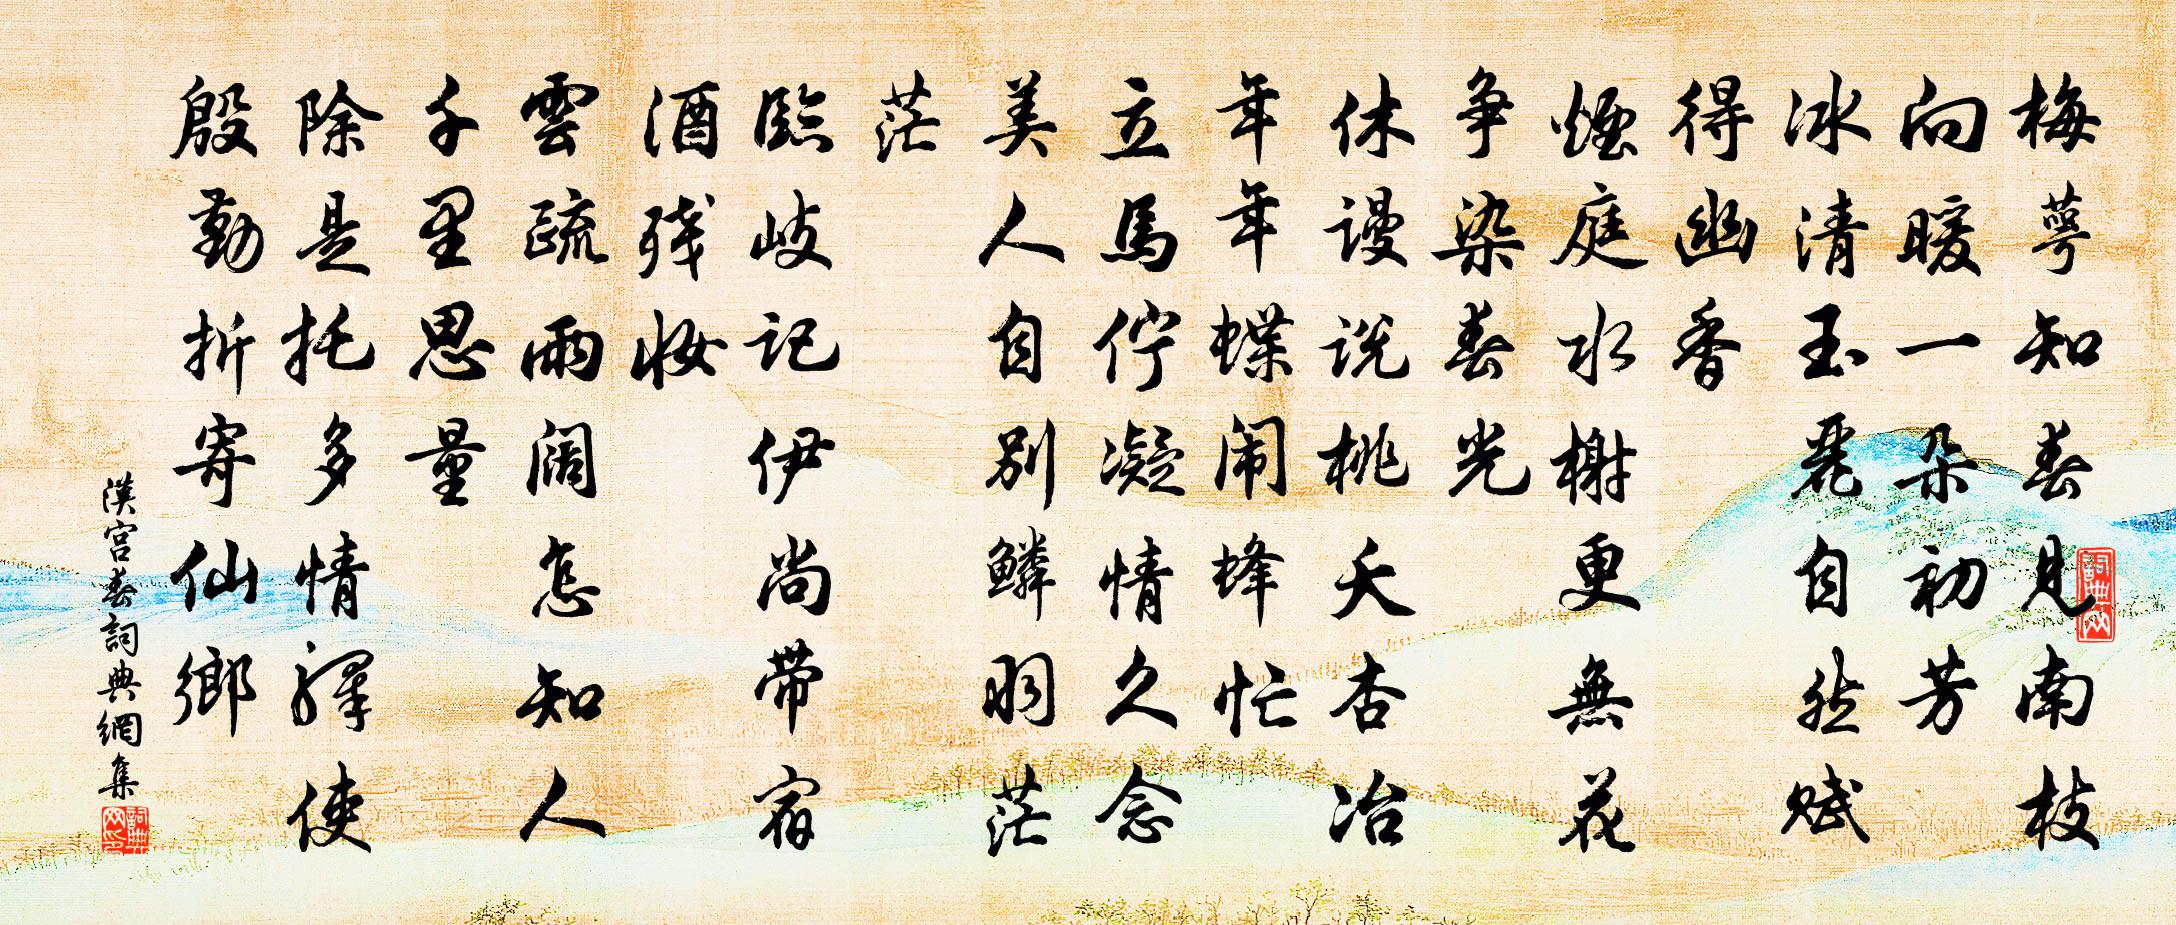 梅萼知春見南枝
向暖一朵初芳
冰清玉麗自然賦
得幽香
煙庭水榭更無花
争染春光
休谩说桃夭杏冶
年年蝶闹蜂忙
立馬佇凝情久念
美人自别鱗羽茫
茫
臨岐记伊尚带宿
酒残妆
雲疏雨阔怎知人
千里思量
除是托多情驛使
殷勤折寄仙鄉
漢宮春詞典網集
詞典网
詞典网印